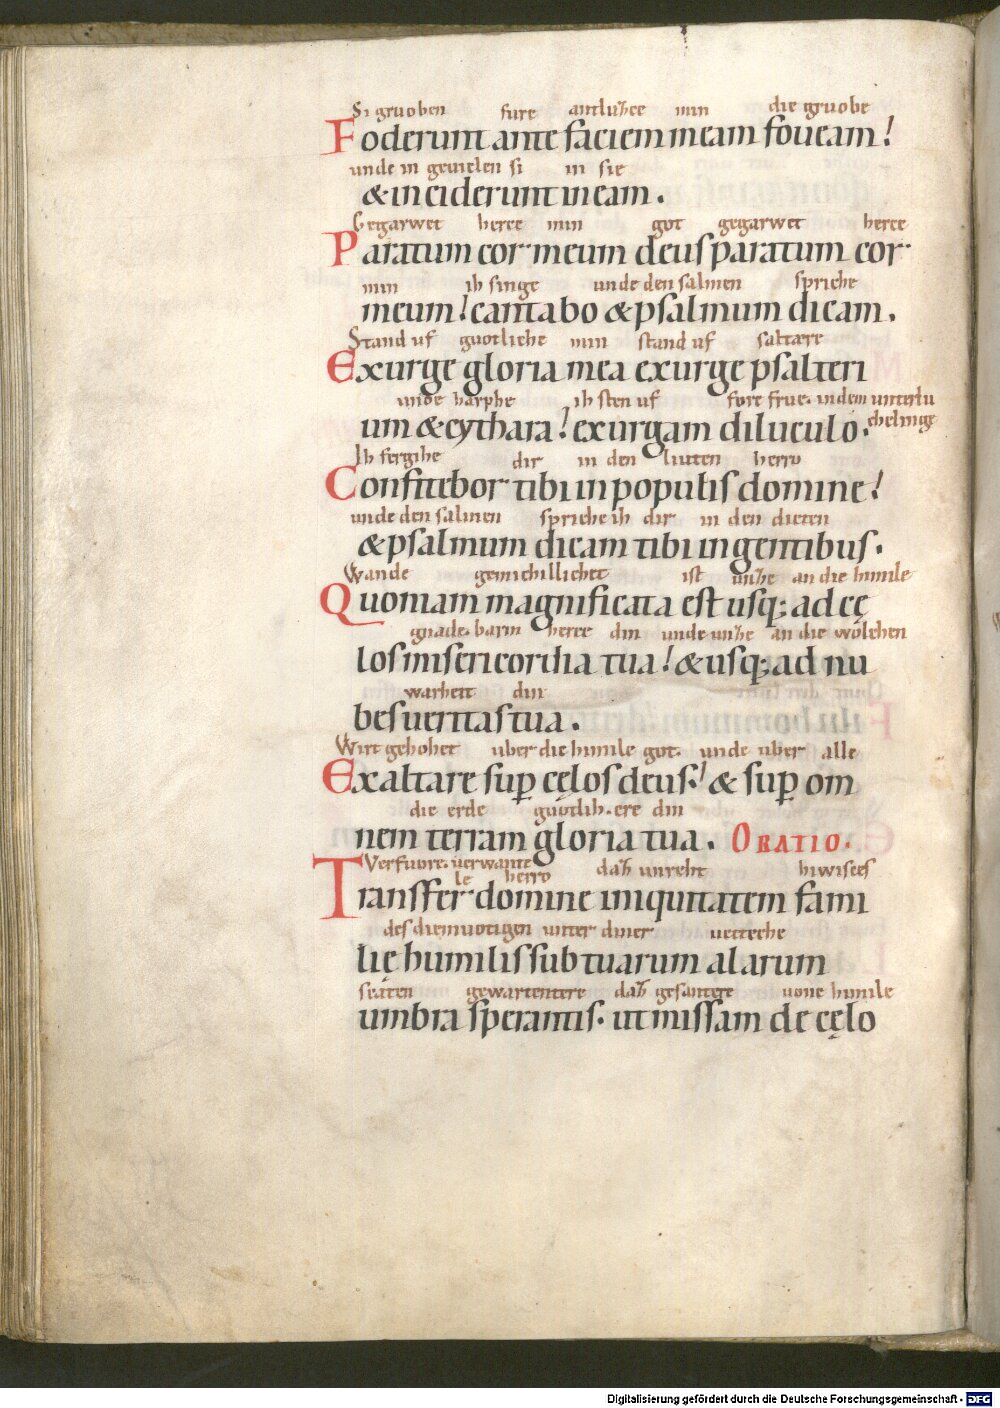 Si gruoben fure antluʒce min die gruobe
Foderunt ante faciem meam foueam!
unde in geuielen si in sie
& inciderunt in eam.
Gegarwet herce min got gegarwet herce
Paratum cor meum deus paratum cor
min ih singe unde den salmen spriche
meum! cantabo & psalmum dicam.
Stand uf guotliche min stand uf saltare
Exurge gloria mea exurge psalteri
unde harphe ih sten uf fore frue. in dem unterlu
chelinge
um & cythara! exurgam diluculo.
Ih fergihe dir in den liuten herro
Confitebor tibi in populis domine!
unde den salmen spriche ih dir in den dieten
& psalmum dicam tibi in gentibus.
Wande gemichillichet ist unʒe an die himile
Quoniam magnificata est usq; ad cę
gnade. barm herce din unde unʒe an die wolchen
los misericordia tua! & usq; ad nu
warheit din
bes ueritas tua.
Wirt gehohet uber die himile got. unde uber alle
Exaltare sup cęlos deus! & sup om
die erde guotlih. ere din
nem terram gloria tua. ORATIO.
Verfuore. uerwante
le herro daʒ unreht hiwisces
Transfer domine iniquitatem fami
des diemuotigen unter diner uetteche
lię humilis sub tuarum alarum
scaten gewartentere daʒ gesantere uone himile
umbra sperantis. ut missam de cęlo
Digitalisierung gefördert durch die Deutsche Forschungsgemeinschaft - DFG